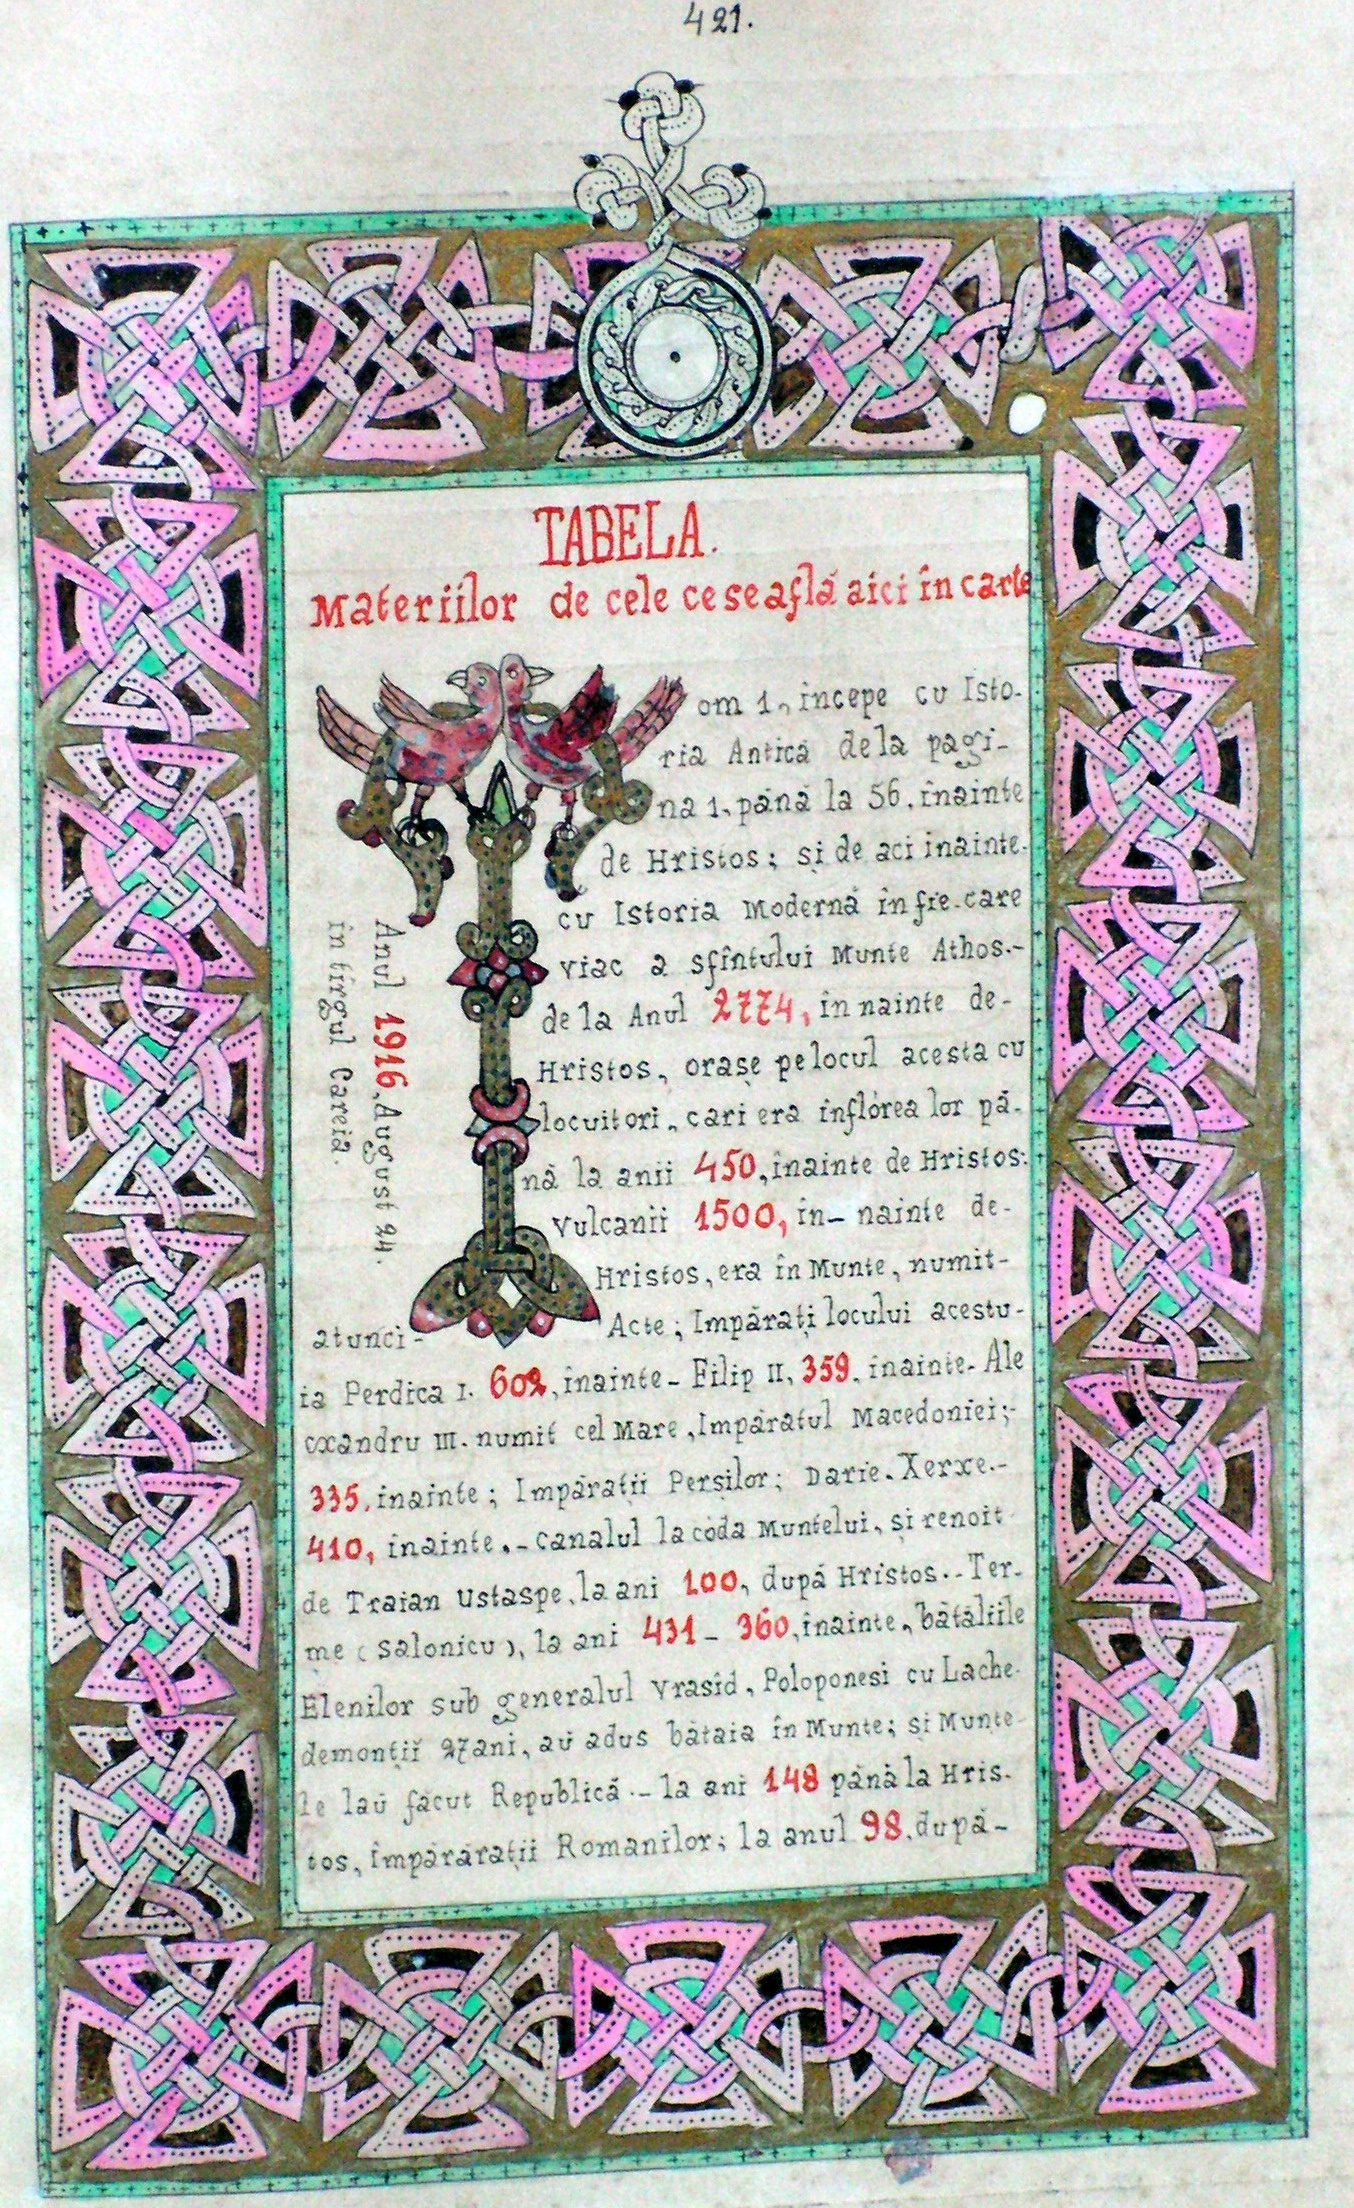 421.
TABELA.
Materiilor de cele ce se află aici în carte
om 1, începe cu Isto-
ria Antică de la pagi-
na 1, până la 56, înainte
de Hristos; și de aci inainte.
cu Istoria Modernă în fie-care
viac a sfîntului Munte Athos.-
de la Anul 2774, în nainte de-
Hristos, orașe pe locul acesta cu
locuitori, cari era înflórea lor pă-
nă la anii 450, înainte de Hristos:
Vulcanii 1500, în- nainte de-
Hristos, era în Munte, numit-
atunci- Acte; Impărați locului acestu-
ia Perdica I. 602, înainte- Filip II, 359. înainte- Ale
xandru III. numit cel Mare, Impăratul Macedoniei;-
335, înainte; Impărații Perșilor; Darie. Xerxe.-
410, înainte.- canalul la códa Muntelui, și renoit
de Traian Ustaspe, la ani 100, după Hristos.- Ter-
me (Salonicu), la ani 431- 360, înainte, bătăliile
Elenilor sub generalul Vrasid, Poloponesi cu Lache-
demonții 27 ani, aŭ adus bătaia în Munte; și Munte-
le laŭ făcut Republică.- la ani 148 până la Hris-
tos, împărărații Romanilor; la anul 98, după-
Anul 1916, August 24.
în tîrgul Careia.